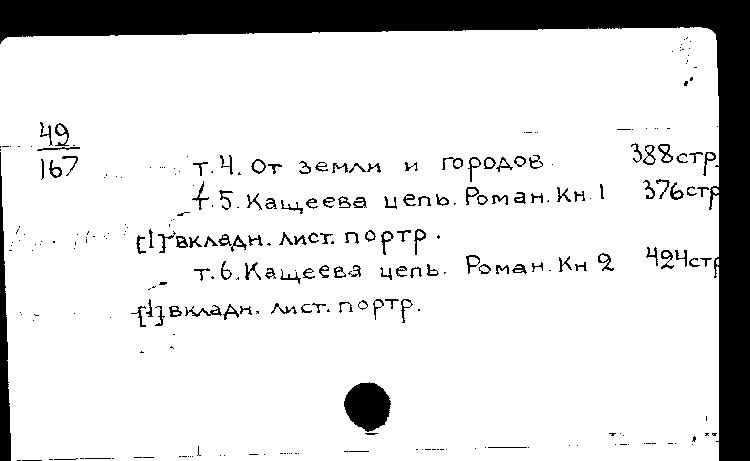 49
167
т.4. От земли и городов. 388стр.
т.5. Кащеева цепь. Роман. Кн. 1 376стр
[1] вкладн. лист. портр.
т.6. Кащеева цепь. Роман. Кн 2 424стр
[1] вкладн. лист. портр.